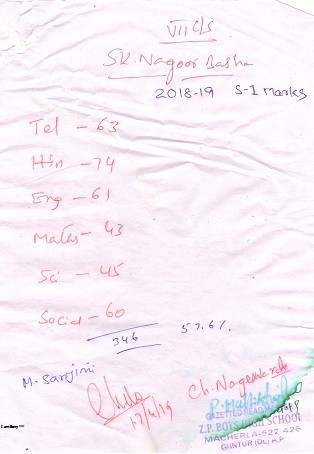 VII C/S
SK. Nagoor Basha
2018-19 S-I marks
Tel - 63
Hin - 74
Eng - 61
Maths - 43
Sci - 45
Social - 60
346 57.6%
M. Sarojini
Ch. Nageswara
17/4/19
Z.P. BOYS HIGH SCHOOL
MACHERLA-522 426
GUNTUR (Dt.) A.P